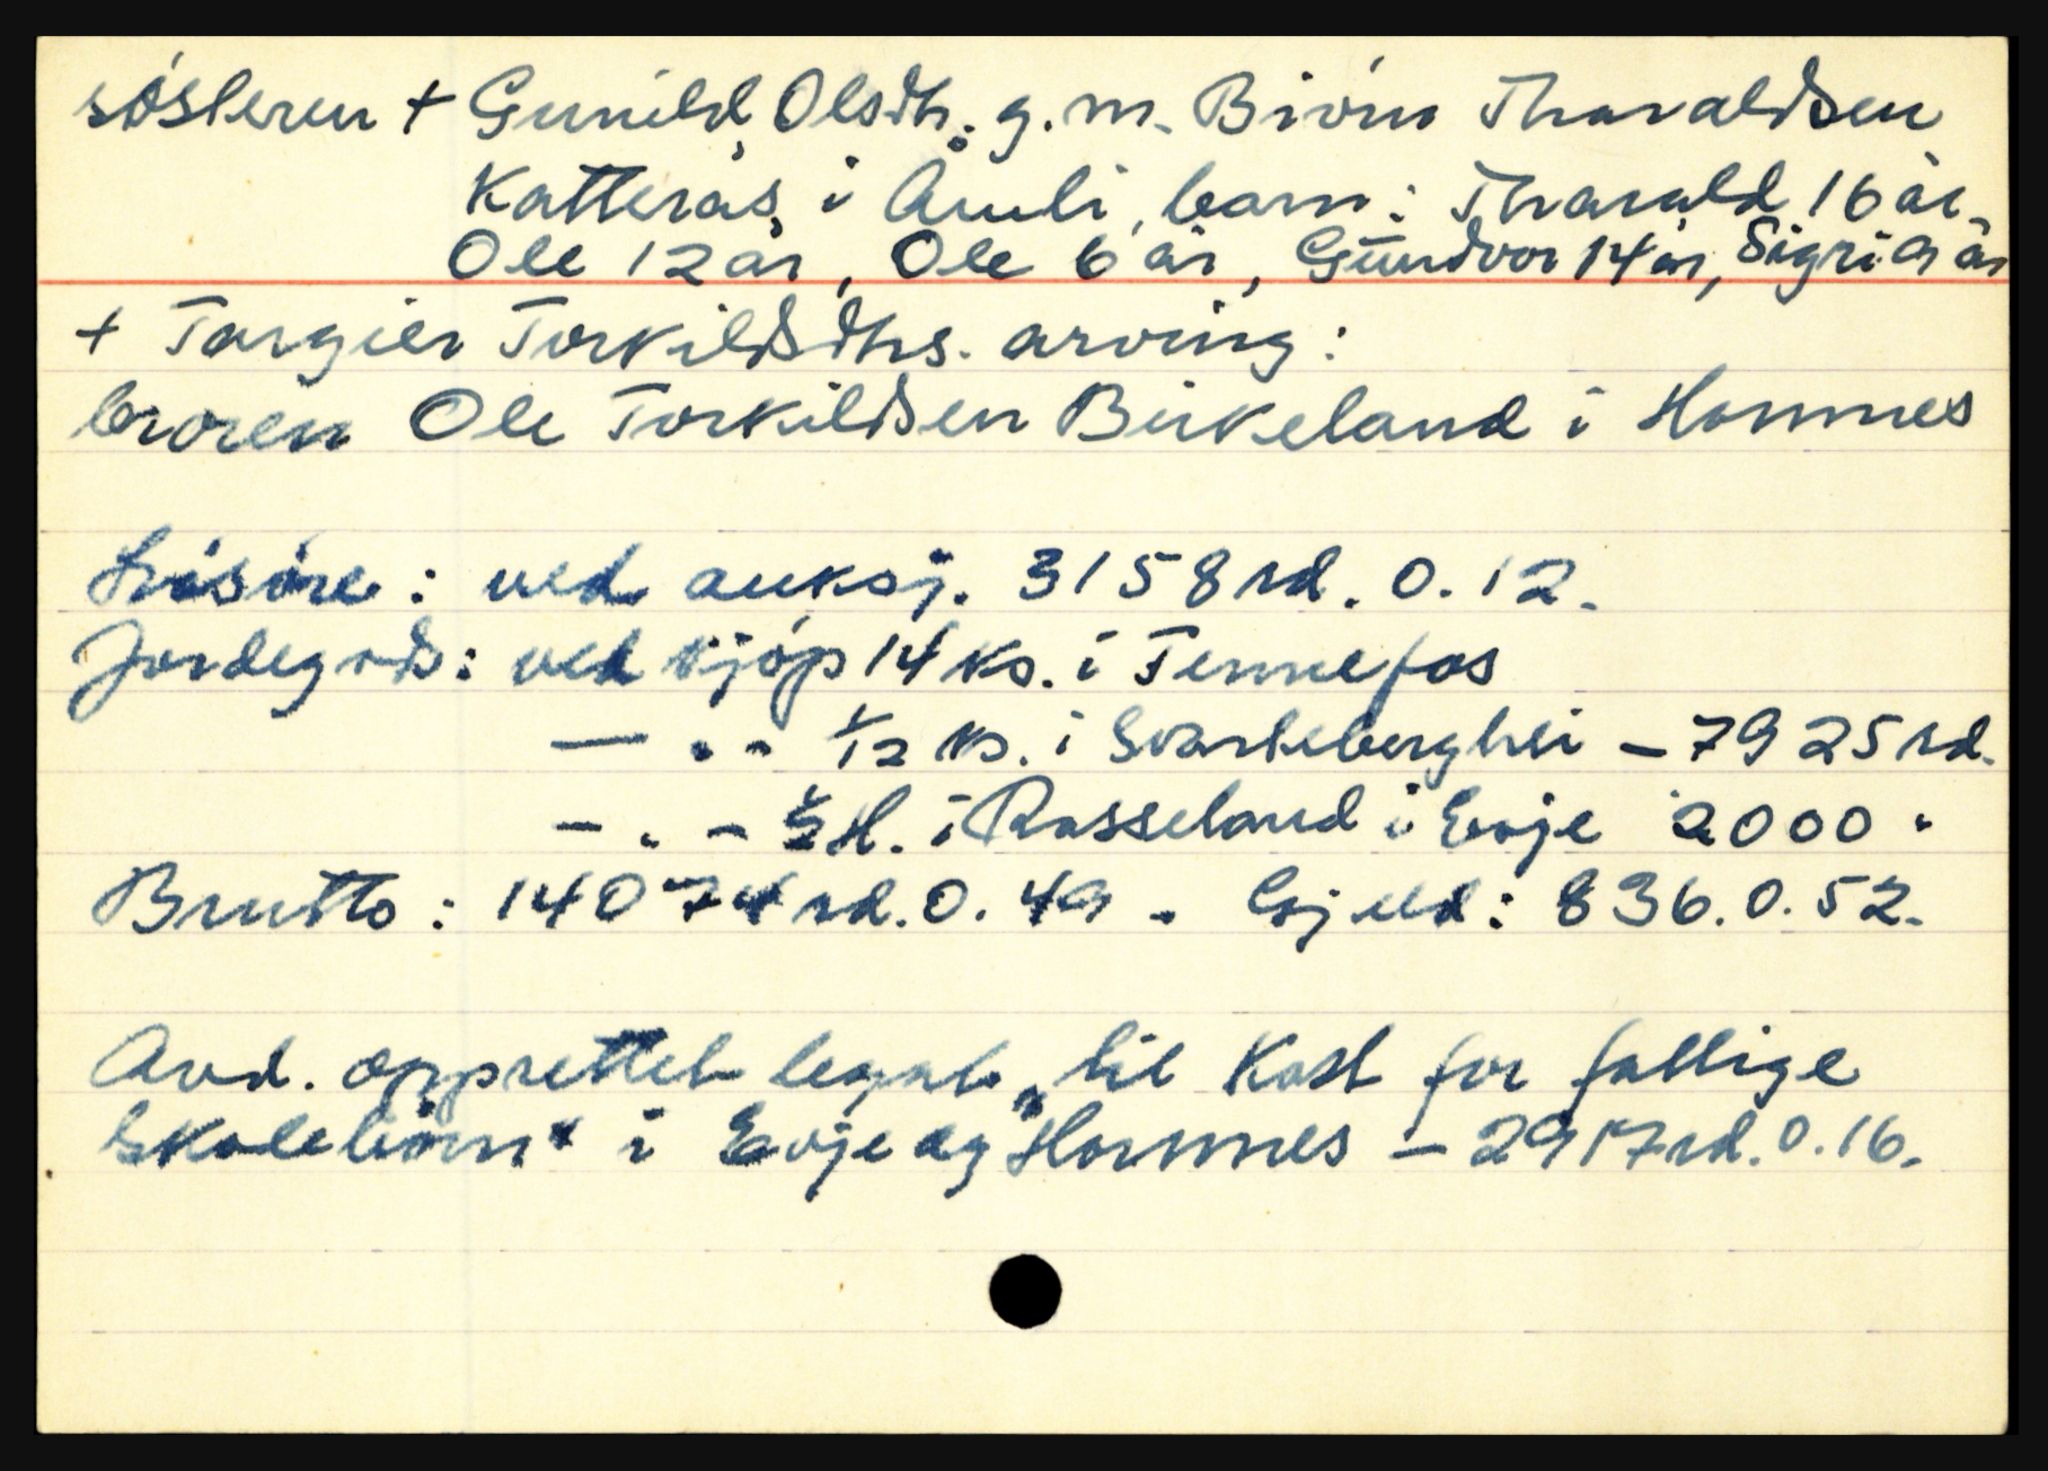 sösteren + Gunild Olsdtr. g.m. Biörn Tharaldsen
Katterås i Åmli, barn: Tharald 16 år.
Ole 12 år, Ole 6 år, Gundvor 14 år, Sigri 9 år
+ Targier Torkildsdtrs. arving:
broren Ole Torkildsen Birkeland i Hornnes
Lösöre: ved auksj. 3158 rd. 0. 12.
Jordegods: ved kjöp 14 ks. i Tennefos
— „ - 1/12 ks. i Svarteberghei - 7925 rd.
- „ - H. i Rosseland i Evje 2000 "
Brutto: 14074 rd. 0. 49. Gjeld: 836. 0. 52.
Avd. opprettet legat „til Kost for fattige
Skolebörn" i Evje og Hornnes - 2917 rd. 0. 16.